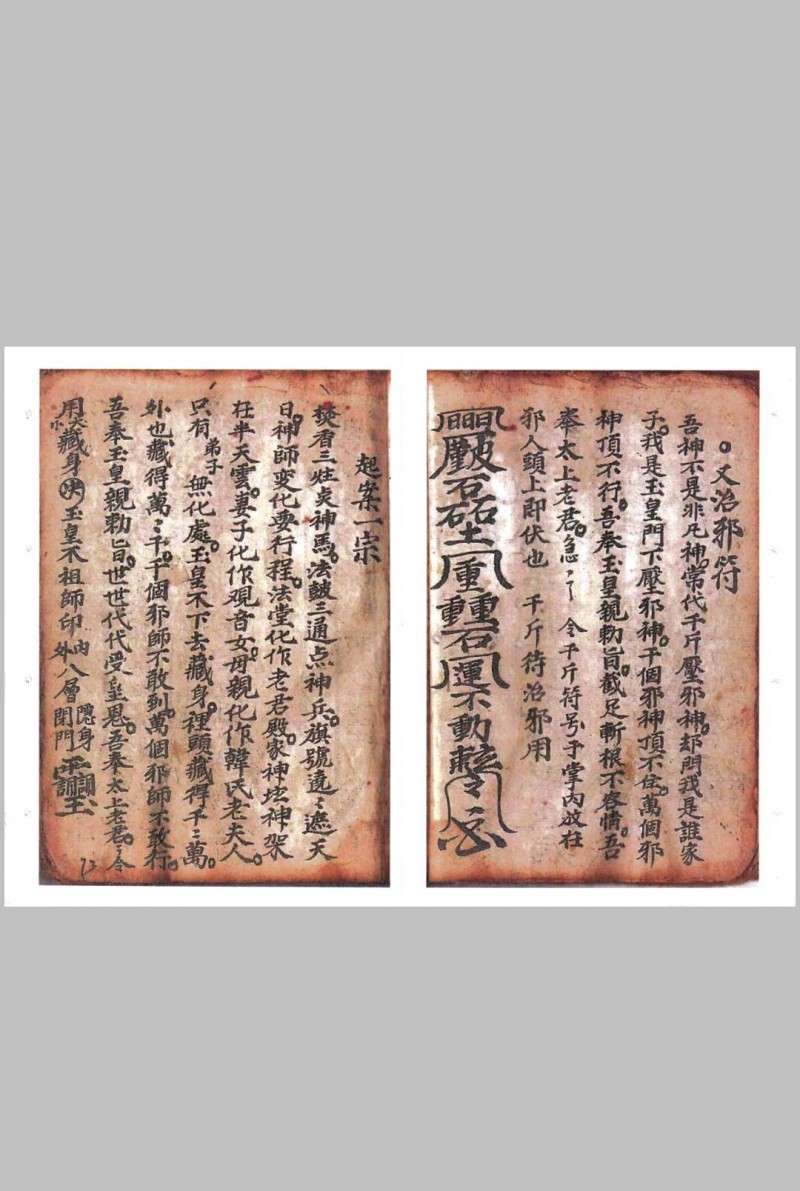 又治邪符
吾神不是非凡神。常代千斤壓邪神。却問我是誰家
子。我是玉皇門下壓邪神。千個邪神頂不住。萬個邪
神頂不行。吾奉玉皇親勅旨。截足斬根不容情。吾
奉太上老君。急〻令千斤符号于掌內放在
邪人頭上即伏也 千斤符治邪用
石磊土 重 動石運不動
起案一宗
焚香三炷炎神馬。法皷三通点神兵。旗號遶〻遮天
日。神師変化要行程。法堂化作老君殿。家神坛神架
在半天雲。妻子化作观音女。母親化作韓氏老夫人。
只有弟子無化處。玉皇不下去藏身。裡頭藏得千〻萬。
外也藏得萬〻千。千個邪師不敢到。萬個邪師不敢行。
吾奉玉皇親勅旨。世世代代受皇恩。吾奉太上老君。〻令
用藏身玉皇不祖師印內外八層隐身閉門